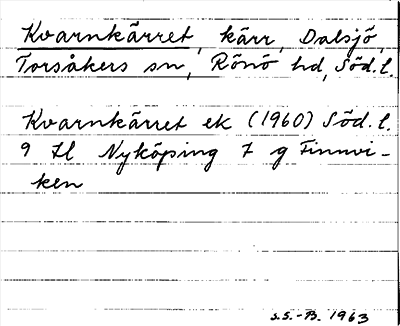 Kvarnkärret, kärr, Dalsjö,
Torsåkers sn, Rönö hd, Söd. l.
Kvarnkärret ek (1960) Söd. l.
9 H Nyköping 7 g Finnvi-
ken
S.S.-B. 1963